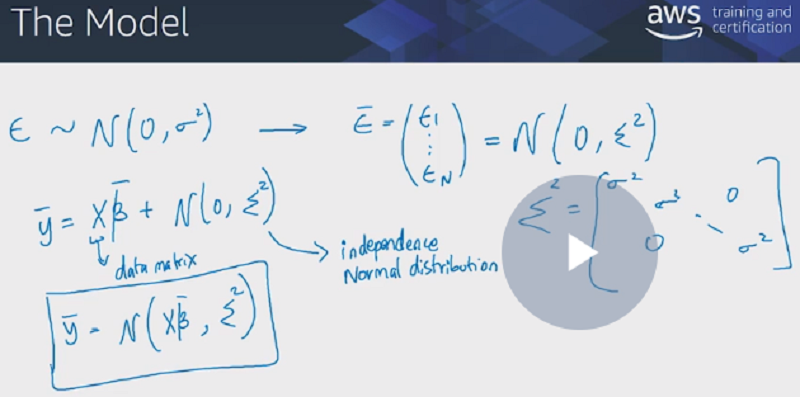 The Model
aws training and certification
ϵ ~ N(0, σ²) → ϵ̄ = (ϵ₁ ⋮ ϵ_N) = N(0, Σ²)
ȳ = Xβ̄ + N(0, Σ²)
Σ² = [σ² σ² ⋱ 0 0 σ²]
data matrix
independence
Normal distribution
ȳ = N(Xβ̄, Σ²)